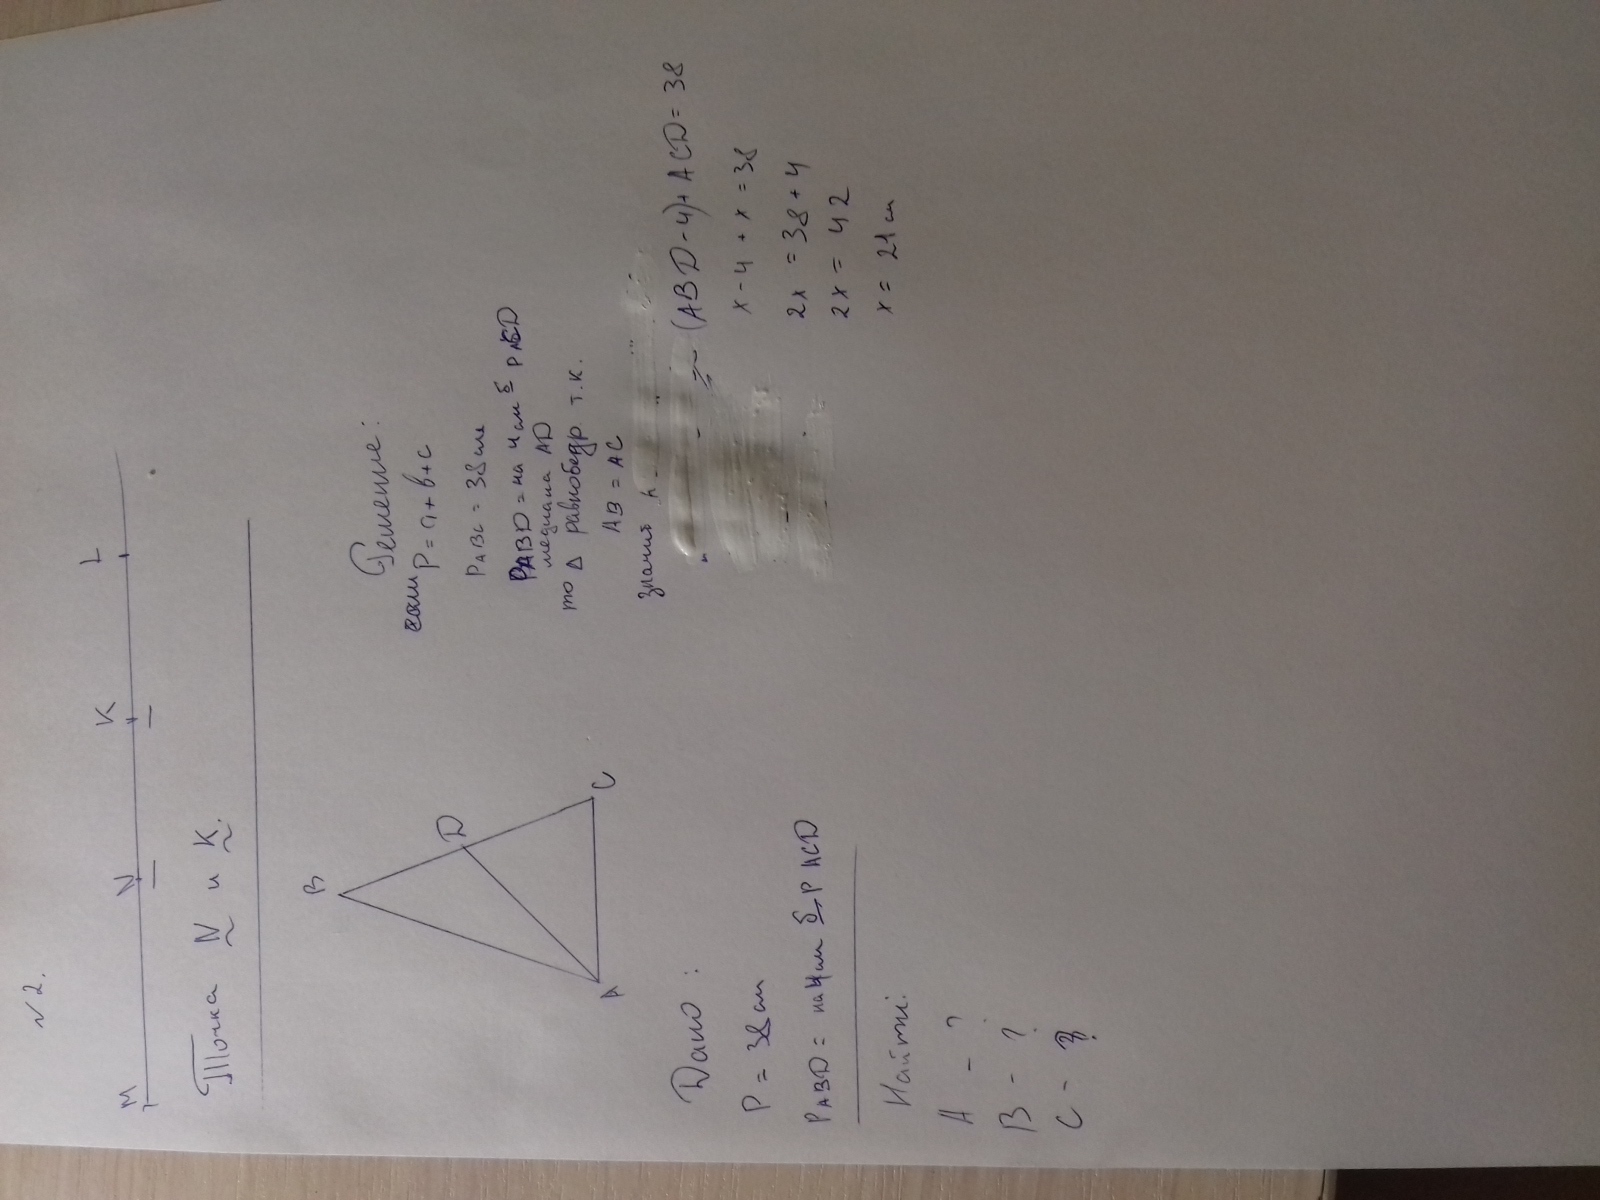 №2.
M N K L
Точка N и K.
B
D
A
C
Дано:
P = 38 см
PABD = на 4 см б. P ACD
Найти:
A - ?
B - ?
C - ?
Решение:
P = a + b + c
PABC = 38 см
PABD = на 4 см б PACD
медиана AD
то Δ равнобедр. т.к.
AB = AC
значит
(ABD - 4) + ACD = 38
x - 4 + x = 38
2x = 38 + 4
2x = 42
x = 21 см